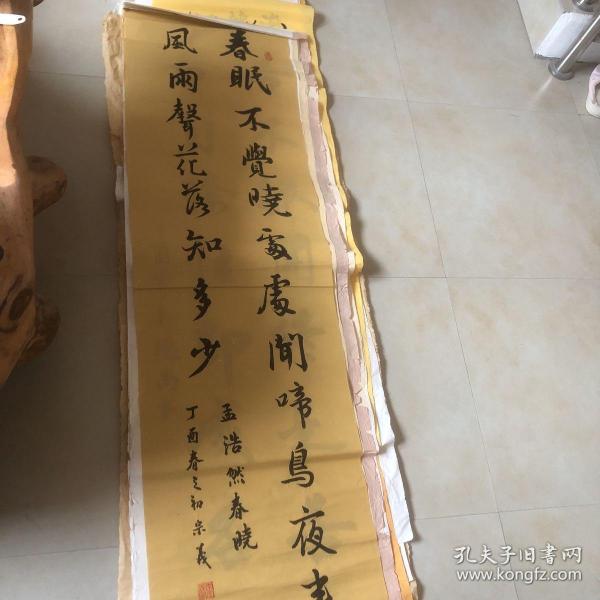 春眠不覺曉處處聞啼鳥夜来
風雨聲花落知多少
孟浩然春曉
丁酉春之初宗義
孔夫子旧書网
www.kongfz.com